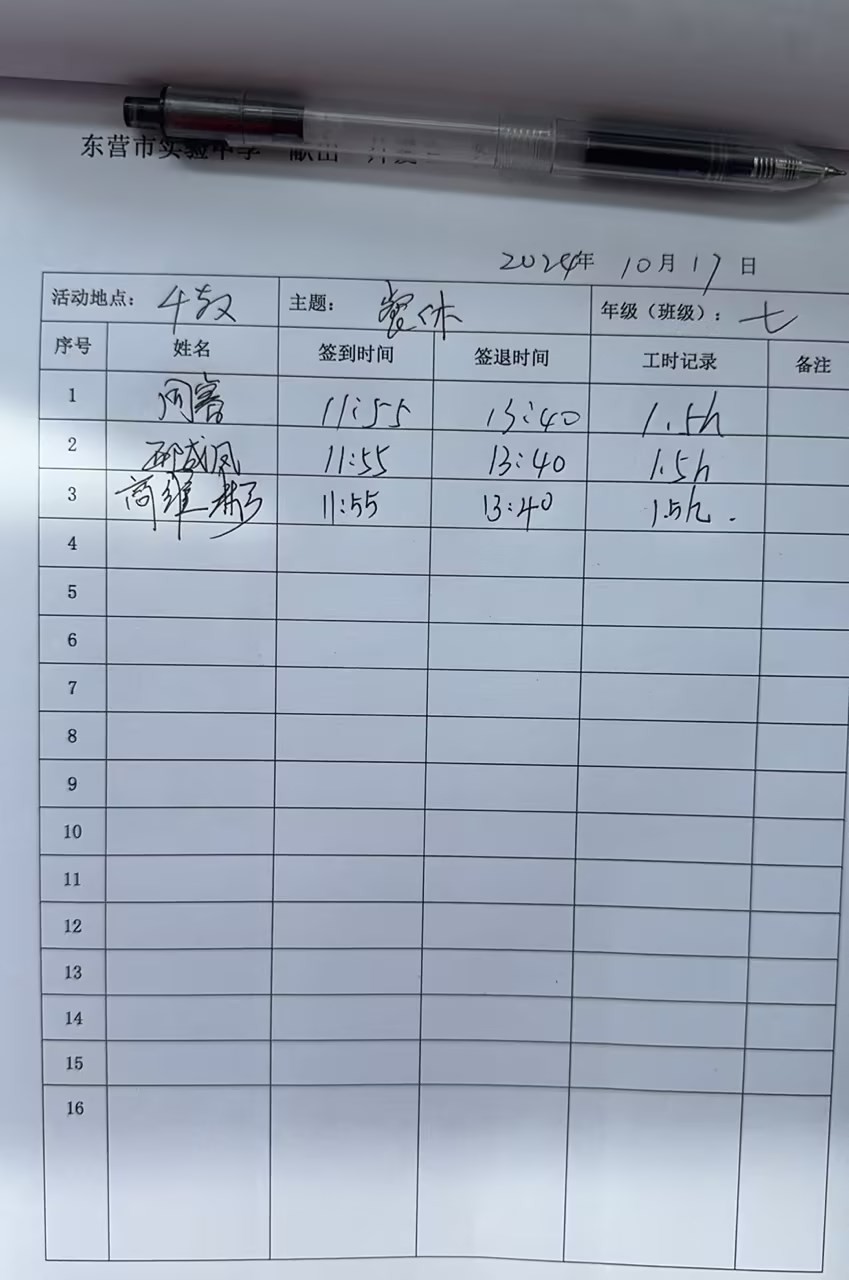 东营市实验中学
2024年 10月17日
活动地点： 4教 主题： 餐休 年级（班级）： 七
序号 姓名 签到时间 签退时间 工时记录 备注
1 11:55 13:40 1.5h
2 邢成凤 11:55 13:40 1.5h
3 高维彬 11:55 13:40 1.5h.
4
5
6
7
8
9
10
11
12
13
14
15
16